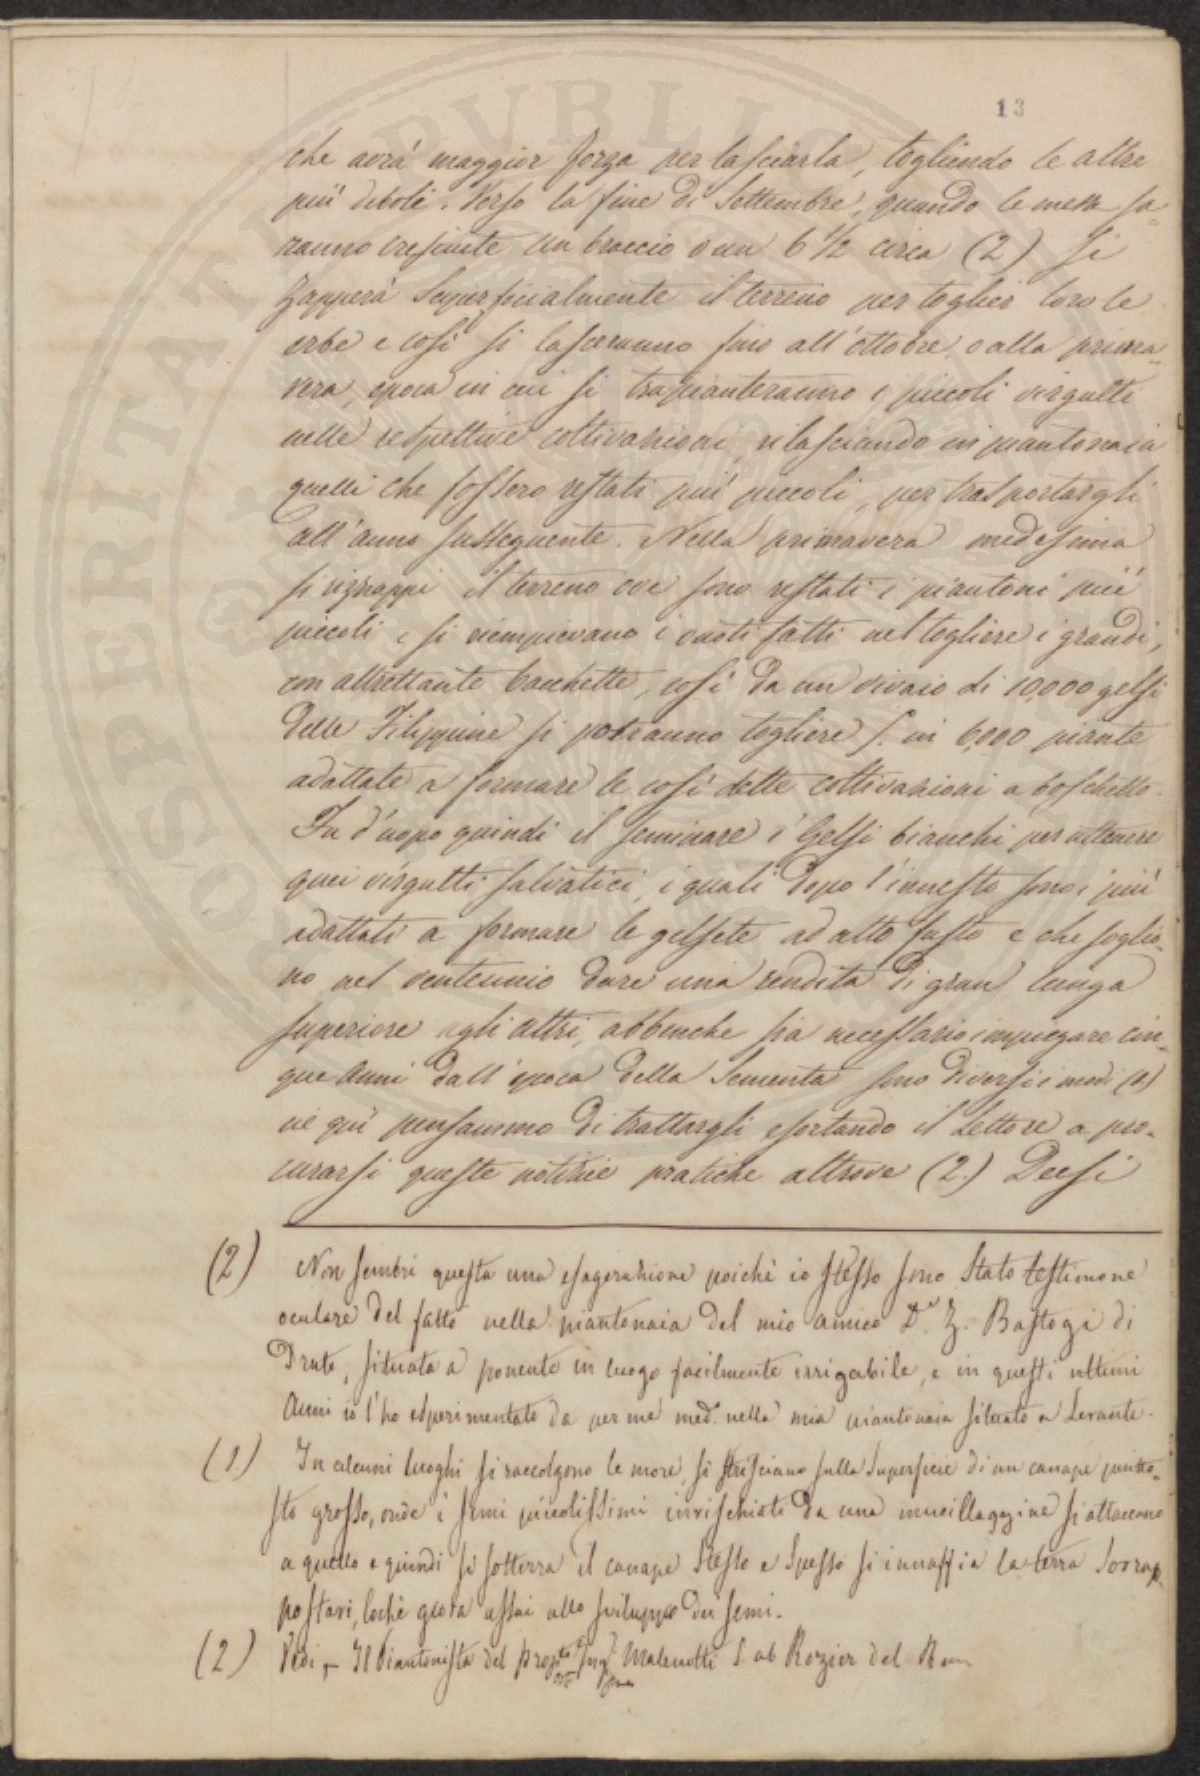 13
che avrà maggior forza per lasciarla, togliendo le altre
più deboli. Verso la fine di Settembre, quando le messe sa-
ranno cresciute un braccio o un 6 1/2 circa (2) Si
Zapperà Superficialmente il terreno per toglier loro le
erbe e così si lasceranno fino all'ottobre o alla prima-
vera, epoca in cui si trapianteranno i piccoli virgulti
nelle respettive coltivazioni, rilasciando in piantonaia
quelli che fossero restati più piccoli, per trasportargli
all'anno susseguente. Nella primavera medesima
si rizzappi il terreno ove sono restati i piantoni più
piccoli e si riempievano i vuoti fatti nel togliere i grandi,
con altrettante bacchette, così da un vivaio di 10,000 gelsi
delle Filippine si potranno togliere in 6,000 piante
adattate a formare le così dette coltivazioni a boschetto.
Fu d'uopo quindi il seminare i Gelsi bianchi per ottenere
quei virgulti salvatici, i quali dopo l'innesto sono i più
adattati a formare le gelsete ad alto fusto e che soglio-
no nel ventennio dare una rendita di gran lunga
superiore agli altri, abbenche sia necessario impiegare cin-
que Anni dall'epoca della Sementa sono diversi i modi (1)
ne quì pensammo di trattargli esortando il Lettore a pro-
curarsi queste notizie pratiche altrove (2.) Deesi
(2) Non sembri questa una esagerazione poichè io stesso sono Stato testimone
oculare del fatto nella piantonaia del mio amico Dr. Z. Bastogi di
Prato, situata a ponente in luogo facilmente irrigabile, e in questi ultimi
Anni io l'ho esperimentato da per me med. nella mia piantonaia situata a Levante.
(1) In alcuni luoghi si raccolgono le more, si strisciano sulla Superficie di un canape piutto-
sto grosso, onde i semi piccolissimi invischiati da una mucillaggine si attaccano
a quello e quindi si sotterra il canape Stesso e Spesso si innaffia la terra Sovrap
postavi, lochè giova assai allo sviluppo dei semi.
(2) Vedi, Il Piantonista del Malenotti ab Rozier del